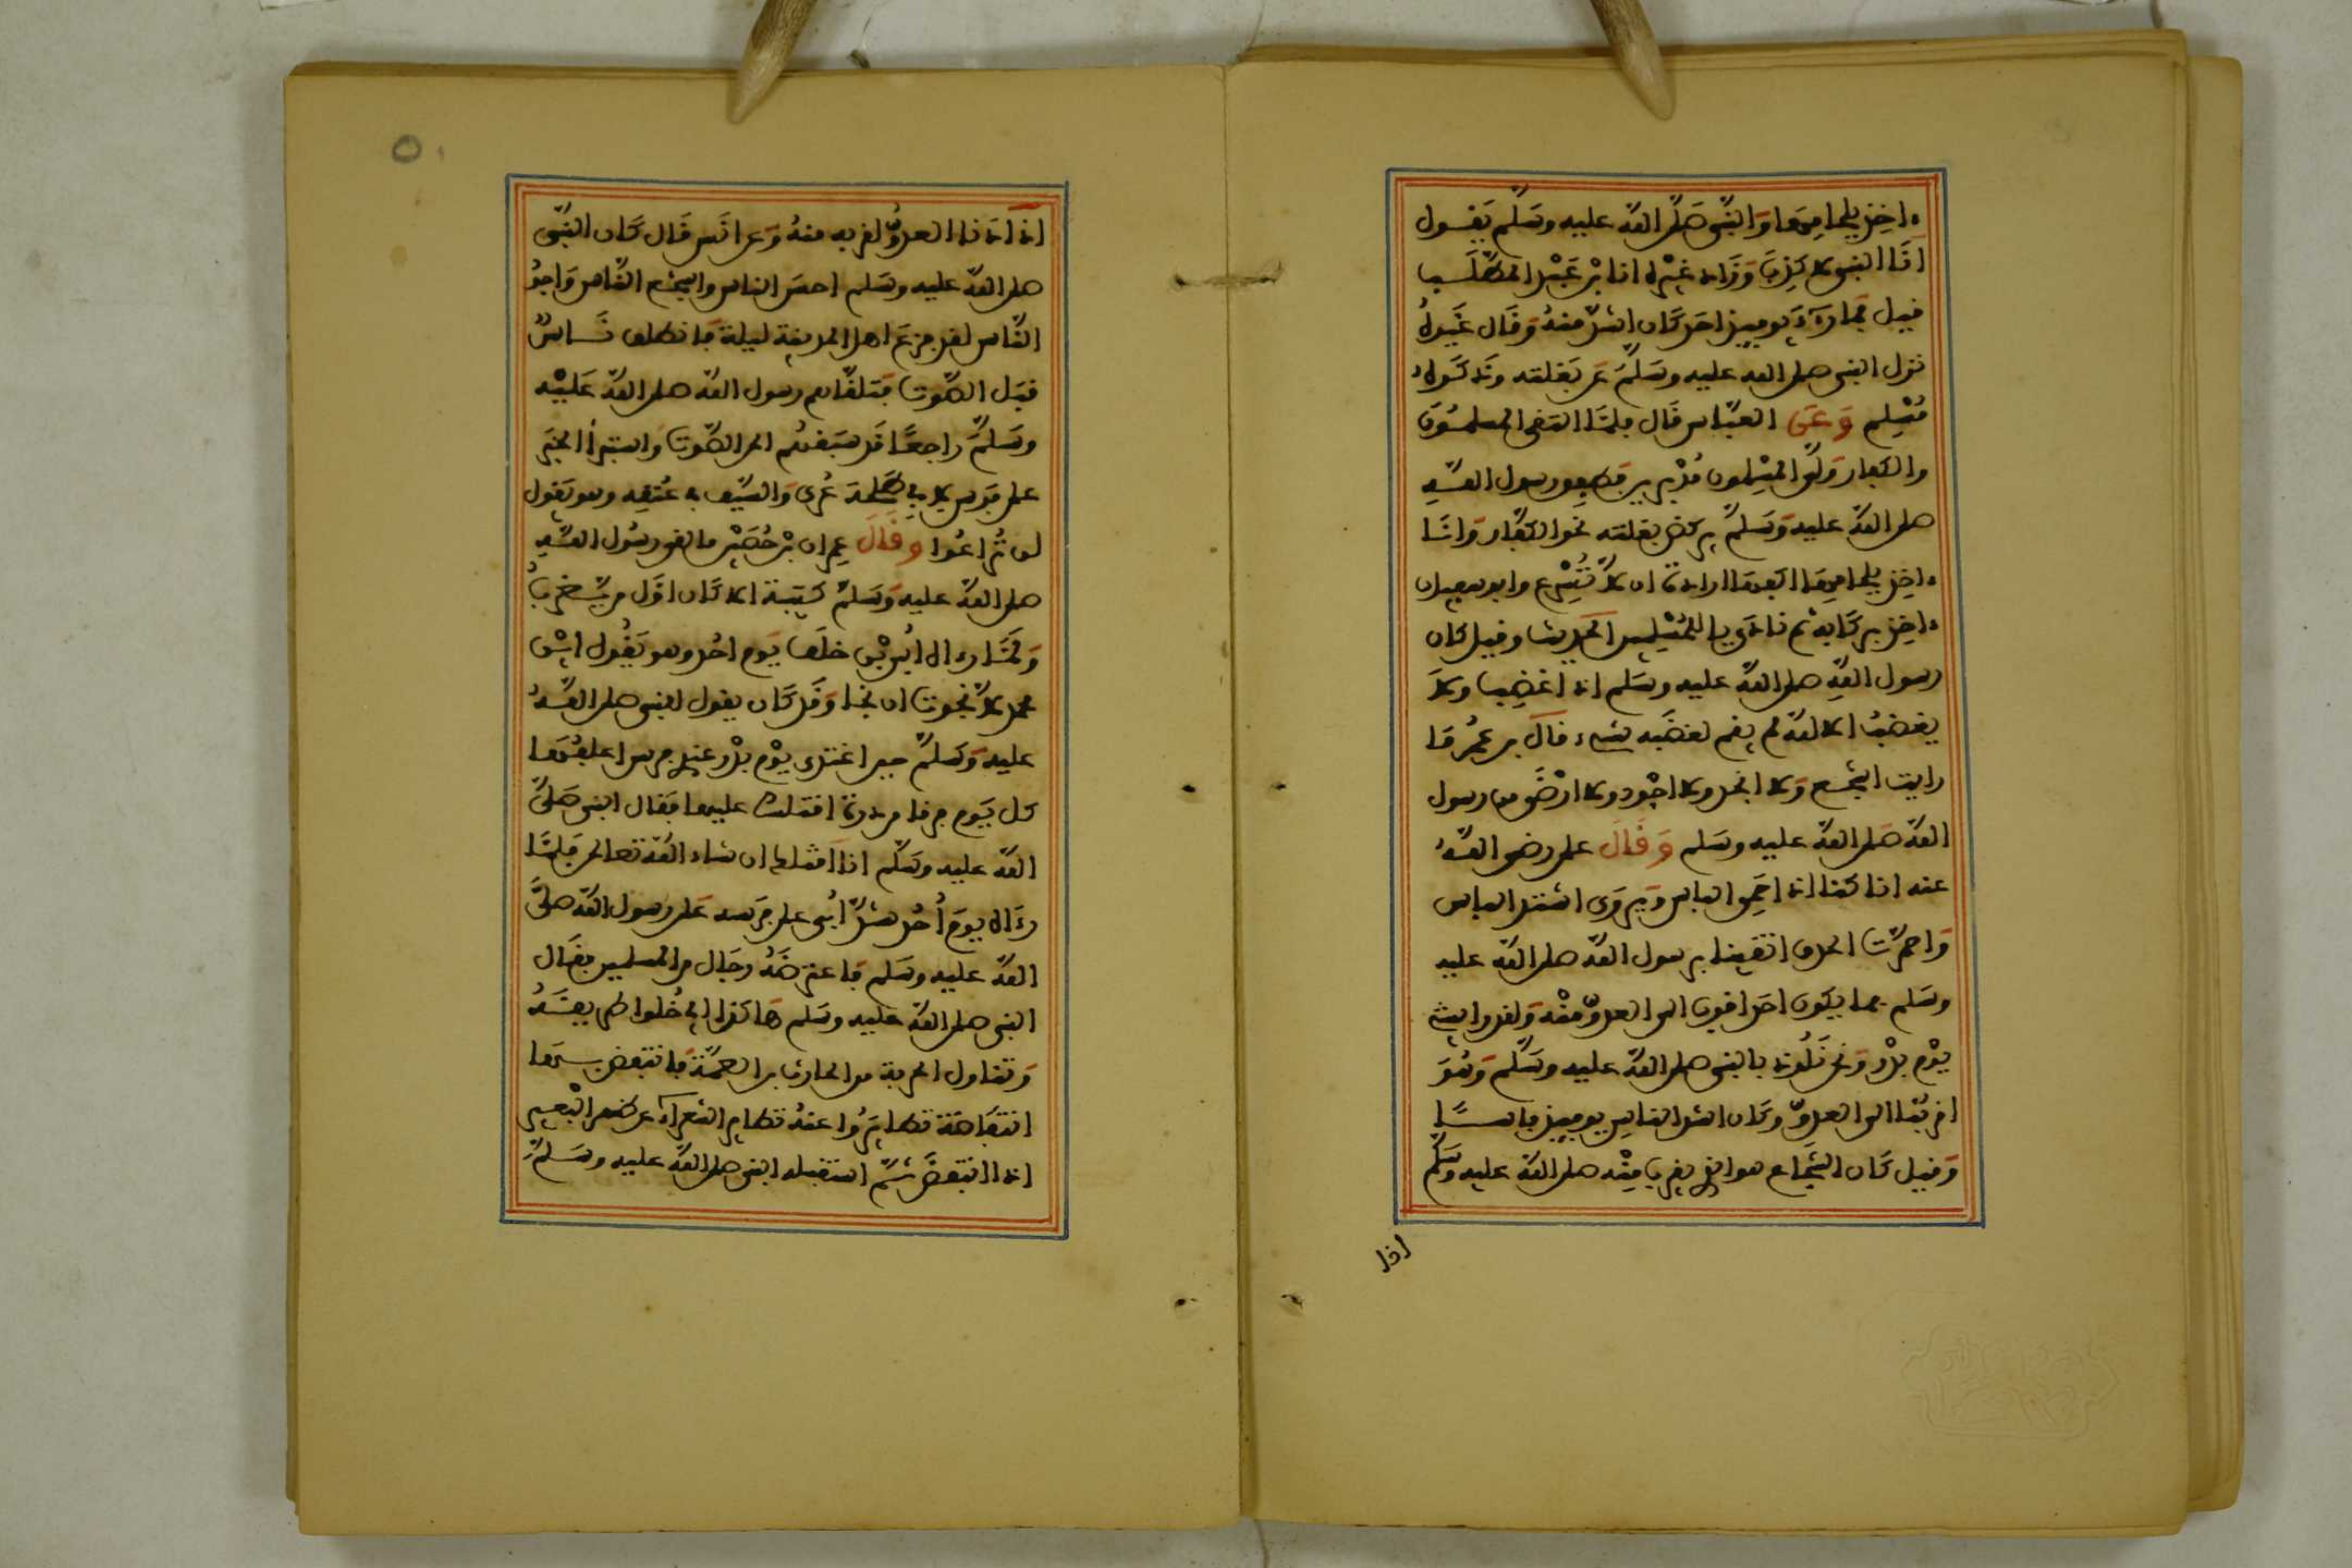 ءاخذ بلجامها والنبي صلى الله عليه وسلم يقول
انا النبي لا كذب وزاد غيره انا بن عبد المطلب
فيل فما رءي يوميذ احد كان اشد منه وقال غيره
نزل النبي صلى الله عليه وسلم عن بغلته وذكره
مسلم وعن العباس قال فلما التقى المسلمون
والكفار ولى المسلمون مدبرين فطفق رسول الله
صلى الله عليه وسلم يركض بغلته نحو الكفار وانا
ءاخذ بلجامها اكفها ارادة ان لا تسرع وابو سفيان
ءاخذ بركابه ثم نادى يا للمسلمين الحديث وفيل كان
رسول الله صلى الله عليه وسلم اذا غضب ولا
يغضب الا لله لم يقم لغضبه شيء قال بن عمر ما
رايت اشجع ولا انجد ولا اجود ولا ارضى من رسول
الله صلى الله عليه وسلم وقال علي رضي الله
عنه انا كنا اذا حمي الباس ويروى اشتد الباس
واحمرت الحدق اتقينا برسول الله صلى الله عليه
وسلم فما يكون احد اقرب الى العدو منه ولقد رايتني
يوم بدر ونحن نلوذ بالنبي صلى الله عليه وسلم وهو
اقربنا الى العدو وكان اشد الناس يوميذ باسا
وقيل كان الشجاع هو الذي يقرب منه صلى الله عليه وسلم
اذا
٥٠
اذا دنا العدو لقربه منه وعن انس قال كان النبي
صلى الله عليه وسلم احسن الناس واشجع الناس واجود
الناس لقد فزع اهل المدينة ليلة فانطلق ناس
قبل الصوت فتلقاهم رسول الله صلى الله عليه
وسلم راجعا قد سبقهم الى الصوت واستبرا الخبر
على فرس لابي طلحة عري والسيف في عنقه وهو يقول
لن تراعوا وقال عمران بن حصين ما لقي رسول الله
صلى الله عليه وسلم كتيبة الا كان اول من يضرب
ولما رءاه ابي بن خلف يوم احد وهو يقول اين
محمد لا نجوت ان نجا وقد كان يقول للنبي صلى الله
عليه وسلم حين افتدى يوم بدر عندي فرس اعلفها
كل يوم فرقا من ذرة اقتلك عليها فقال النبي صلى
الله عليه وسلم انا اقتلك ان شاء الله تعالى فلما
رءاه يوم احد شد ابي على فرسه على رسول الله صلى
الله عليه وسلم فاعترضه رجال من المسلمين فقال
النبي صلى الله عليه وسلم هاكذا اي خلوا طريقه
وتناول الحربة من الحارث بن الصمة فانتفض بها
انتفاضة تطايروا عنه تطاير الشعراء عن ظهر البعير
اذا انتفض ثم استقبله النبي صلى الله عليه وسلم